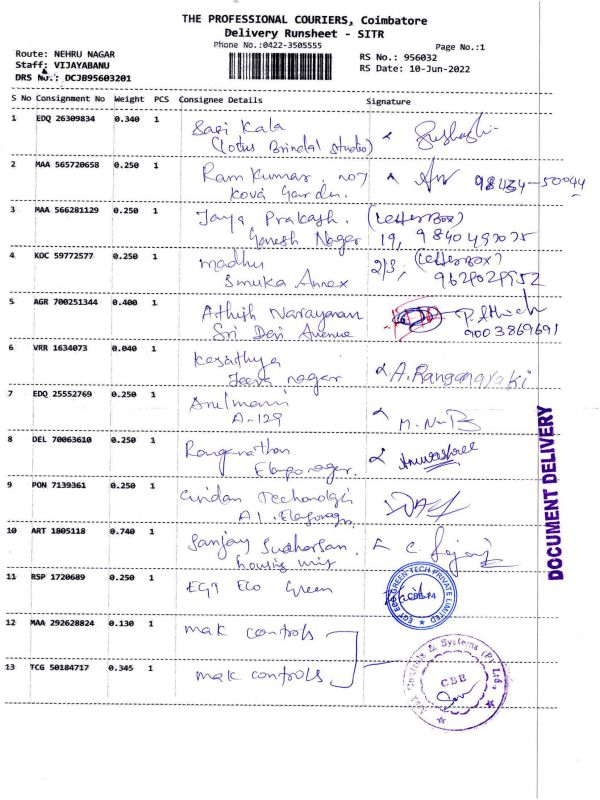 THE PROFESSIONAL COURIERS, Coimbatore
Delivery Runsheet - SITR
Phone No.:0422-3505555
Page No.:1
Route: NEHRU NAGAR
RS No.: 956032
Staff: VIJAYABANU
RS Date: 10-Jun-2022
DRS No.: DCJB95603201
S No Consignment No Weight PCS Consignee Details Signature
1 EDQ 26309834 0.340 1 Sasi Kala
(Lotus Brindal Studio)
2 MAA 565720658 0.250 1 Ram Kumar. no7 98434-50044
Kova Garden.
3 MAA 566281129 0.250 1 Jaya Prakash. (Letter Box)
Ganesh Nagar 19,
4 KOC 59772577 0.250 1 madhu 2/3, (Letter Box)
Annex
5 AGR 700251344 0.400 1 Athish Narayanan P. Athish
Sri Devi Avenue 9003869691
6 VRR 1634073 0.040 1
Jeeva nagar A. Ranganayaki
7 EDQ 25552769 0.250 1 Arulmani
A-129
8 DEL 70063610 0.250 1 Ranganathan
9 PON 7139361 0.250 1
10 ART 1805118 0.740 1 Sanjay Sudharsan
housing unit
11 RSP 1720689 0.250 1 EGT Eco Green
EGT ECO GREEN TECH PRIVATE LIMITED
12 MAA 292628824 0.130 1 mak controls
13 TCG 50184717 0.345 1 mak controls
Controls & Systems (P) Ltd.,
CBE
DOCUMENT DELIVERY